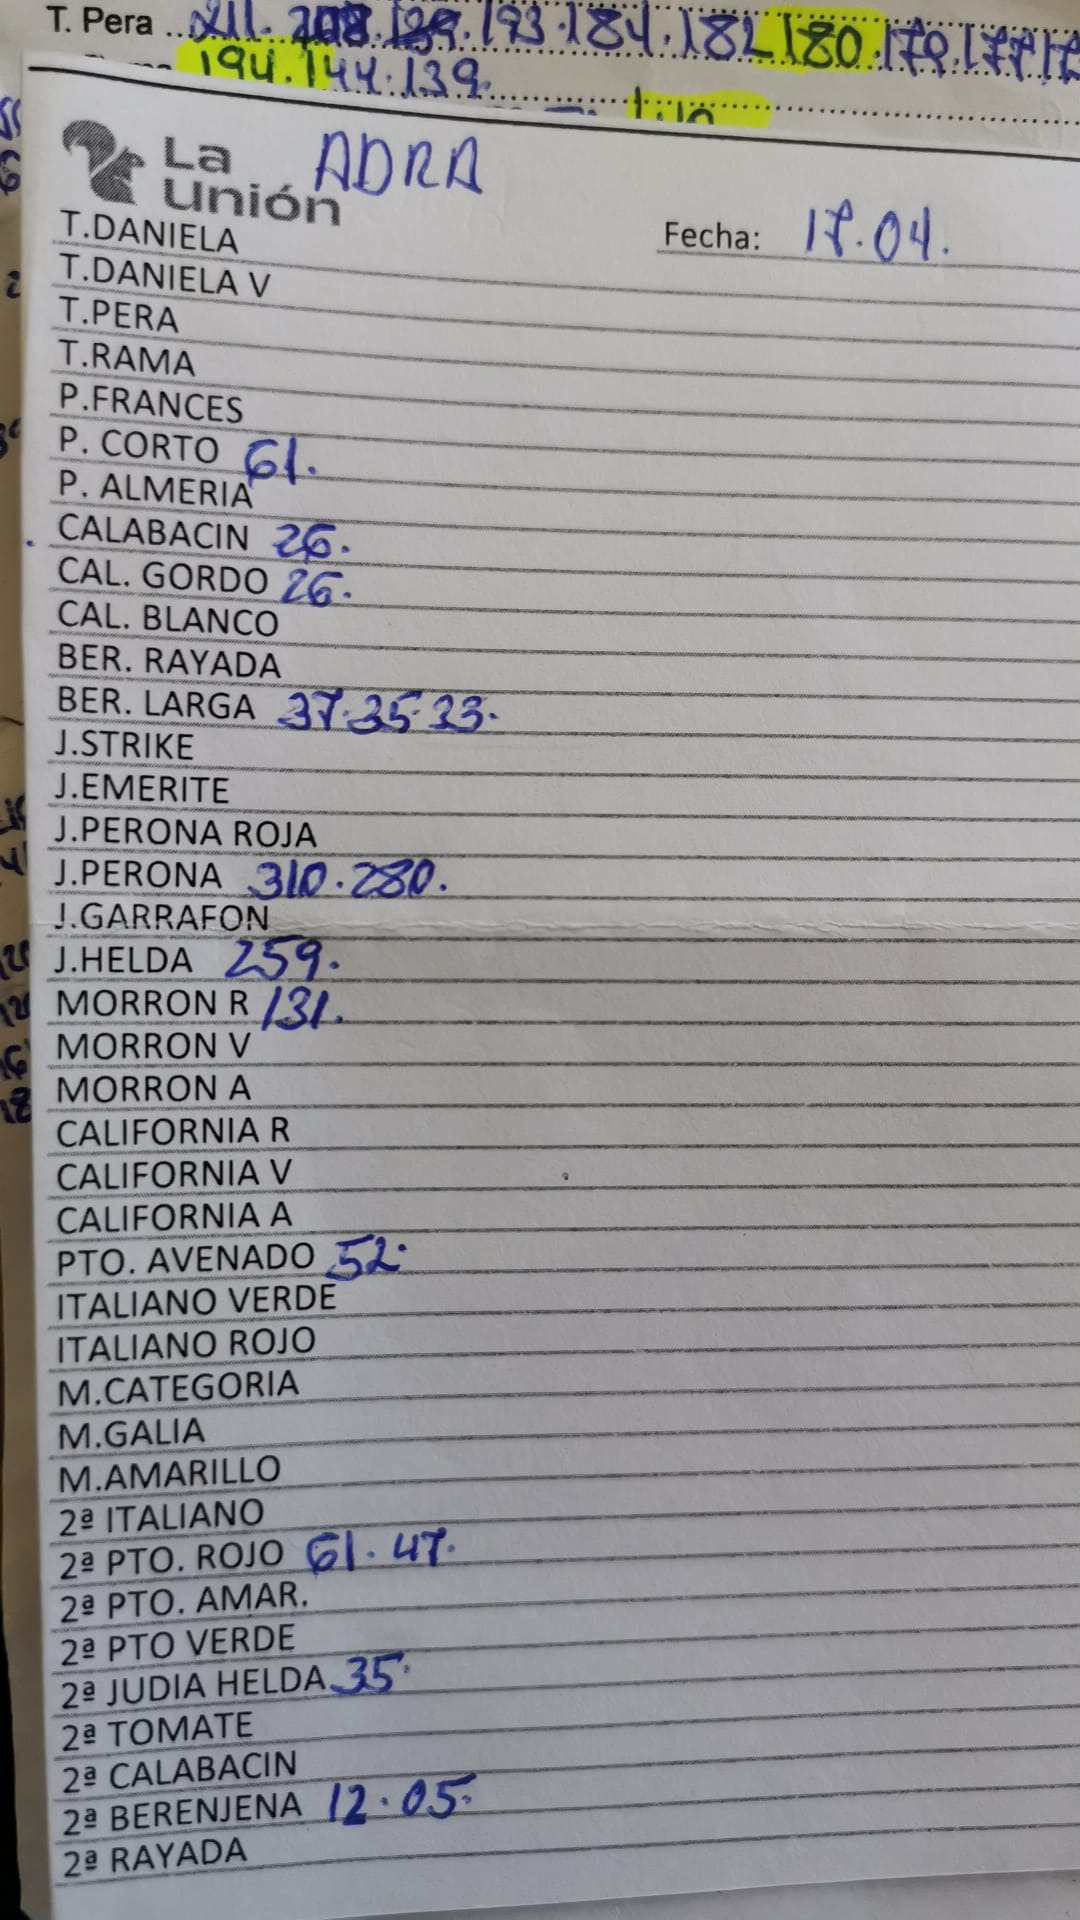 T. Pera 211. 193. 184. 182 180. 179. 177
194. 144. 139.
La
Unión
ADRA
Fecha: 17.04.
T.DANIELA
T.DANIELA V
T.PERA
T.RAMA
P.FRANCES
P. CORTO 61.
P. ALMERIA
CALABACIN 26.
CAL. GORDO 26.
CAL. BLANCO
BER. RAYADA
BER. LARGA 37.35.33.
J.STRIKE
J.EMERITE
J.PERONA ROJA
J.PERONA 310.280.
J.GARRAFON
J.HELDA 259.
MORRON R 131.
MORRON V
MORRON A
CALIFORNIA R
CALIFORNIA V
CALIFORNIA A
PTO. AVENADO 52.
ITALIANO VERDE
ITALIANO ROJO
M.CATEGORIA
M.GALIA
M.AMARILLO
2ª ITALIANO
2ª PTO. ROJO 61. 47.
2ª PTO. AMAR.
2ª PTO VERDE
2ª JUDIA HELDA 35.
2ª TOMATE
2ª CALABACIN
2ª BERENJENA 12.05.
2ª RAYADA